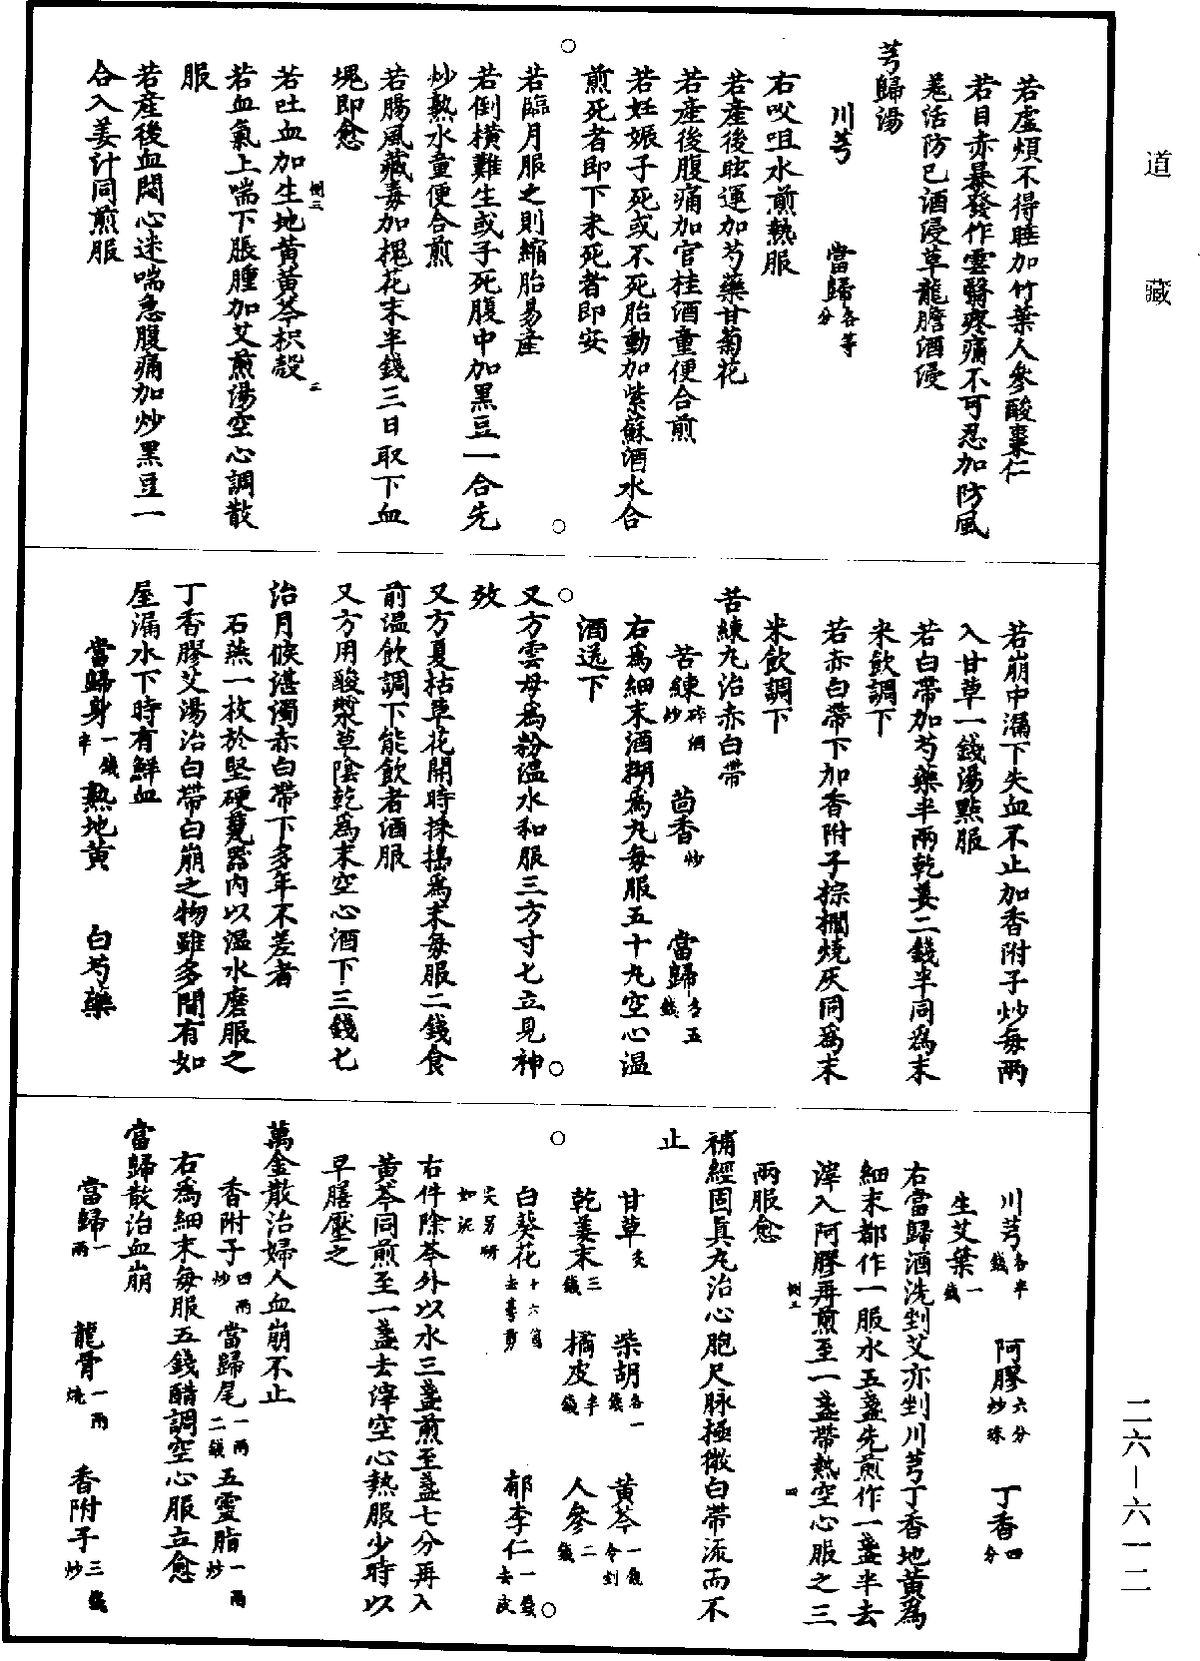 道藏
若虛煩不得睡加竹葉人參酸棗仁
若目赤暴發作雲翳疼痛不可忍加防風
羗活防已酒浸草龍膽酒浸
芎歸湯
川芎 當歸各等分
右㕮咀水煎熱服
若產後眩運加芍藥甘菊花
若產後腹痛加官桂酒童便合煎
若妊娠子死或不死胎動加紫蘇酒水合
煎死者即下未死者即安
若臨月服之則縮胎易產
若倒橫難生或子死腹中加黑豆一合先
炒熟水童便合煎
若腸風藏毒加槐花末半錢三日取下血
塊即愈
側三
三
若吐血加生地黃黃芩枳殼
若血氣上喘下脹腫加艾煎湯空心調散
服
若產後血悶心迷喘急腹痛加炒黑豆一
合入姜汁同煎服
若崩中漏下失血不止加香附子炒每兩
入甘草一錢湯點服
若白帶加芍藥半兩乾姜二錢半同為末
米飲調下
若赤白帶下加香附子棕櫚燒灰同為末
米飲調下
苦練丸治赤白帶
苦練碎酒炒 茴香炒 當歸各五錢
右為細末酒糊為丸每服五十丸空心温
酒送下
又方雲母為粉温水和服三方寸匕立見神
效
又方夏枯草花開時採搗為末每服二錢食
前温飲調下能飲者酒服
又方用酸漿草陰乾為末空心酒下三錢匕
治月候湛濁赤白帶下多年不差者
石燕一枚於堅硬甆器內以温水磨服之
丁香膠艾湯治白帶白崩之物雖多間有如
屋漏水下時有鮮血
當歸身一錢半 熟地黃 白芍藥
川芎各半錢 阿膠六分炒珠 丁香四分
生艾葉一錢
右當歸酒洗剉艾亦剉川芎丁香地黃為
細末都作一服水五盞先煎作一盞半去
滓入阿膠再煎至一盞帶熱空心服之三
側三
四
兩服愈
補經固真丸治心胞尺脉極微白帶流而不
止
甘草炙 柴胡各一錢 黃芩一錢令剉
乾姜末三錢 橘皮半錢 人參二錢
白葵花十六箇去萼剪 郁李仁一錢去皮
尖另研如泥
右件除芩外以水三盞煎至盞七分再入
黃芩同煎至一盞去滓空心熱服少時以
早膳壓之
萬金散治婦人血崩不止
香附子四兩炒 當歸尾一兩二錢 五靈脂一兩炒
右為細末每服五錢醋調空心服立愈
當歸散治血崩
當歸一兩 龍骨一兩燒 香附子三錢炒
二六—六一二